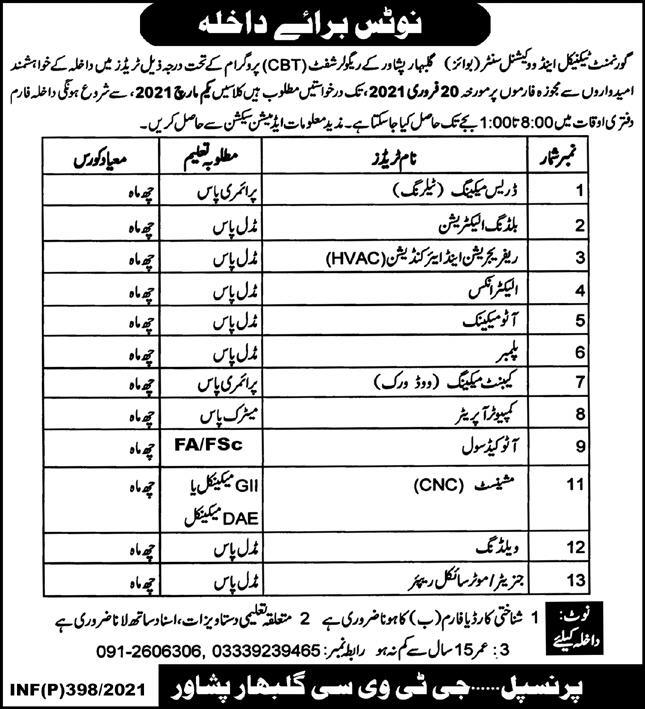 نوٹس برائے داخلہ
گورنمنٹ ٹیکنیکل اینڈ ووکیشنل سنٹر (بوائز) گلبہار پشاور کے ریگولر شفٹ (CBT) پروگرام کے تحت درجہ ذیل ٹریڈز میں داخلہ کے خواہشمند
امیدواروں سے مجوزہ فارموں پر مورخہ 20 فروری 2021، تک درخواستیں مطلوب ہیں کلاسیں یکم مارچ 2021، سے شروع ہونگی داخلہ فارم
دفتری اوقات میں 8:00 تا 1:00 بجے تک حاصل کیا جا سکتا ہے۔ مذید معلومات ایڈمیشن سیکشن سے حاصل کریں۔
نمبر شمار نام ٹریڈز مطلوبہ تعلیم معیاد کورس
1 ڈریس میکینگ (ٹیلرنگ) پرائمری پاس چھ ماہ
2 بلڈنگ الیکٹریشن مڈل پاس چھ ماہ
3 ریفریجریشن اینڈ ایئر کنڈیشن (HVAC) مڈل پاس چھ ماہ
4 الیکٹرانکس مڈل پاس چھ ماہ
5 آٹو میکینک مڈل پاس چھ ماہ
6 پلمبر مڈل پاس چھ ماہ
7 کیبنٹ میکینگ (ووڈ ورک) پرائمری پاس چھ ماہ
8 کمپیوٹر آپریٹر میٹرک پاس چھ ماہ
9 آٹو کیڈ سول FA/FSc چھ ماہ
11 مشینسٹ (CNC) GII میکینکل یا چھ ماہ
DAE میکینکل
12 ویلڈنگ مڈل پاس چھ ماہ
13 جنریٹر/موٹر سائکل ریپئر مڈل پاس چھ ماہ
نوٹ: داخلہ کیلئے
1 شناختی کارڈ یا فارم (ب) کا ہونا ضروری ہے 2 متعلقہ تعلیمی دستاویزات، اسناد ساتھ لانا ضروری ہے
3: عمر 15 سال سے کم نہ ہو رابطہ نمبر: 03339239465, 091-2606306
پرنسپل......جی ٹی وی سی گلبہار پشاور
INF(P)398/2021